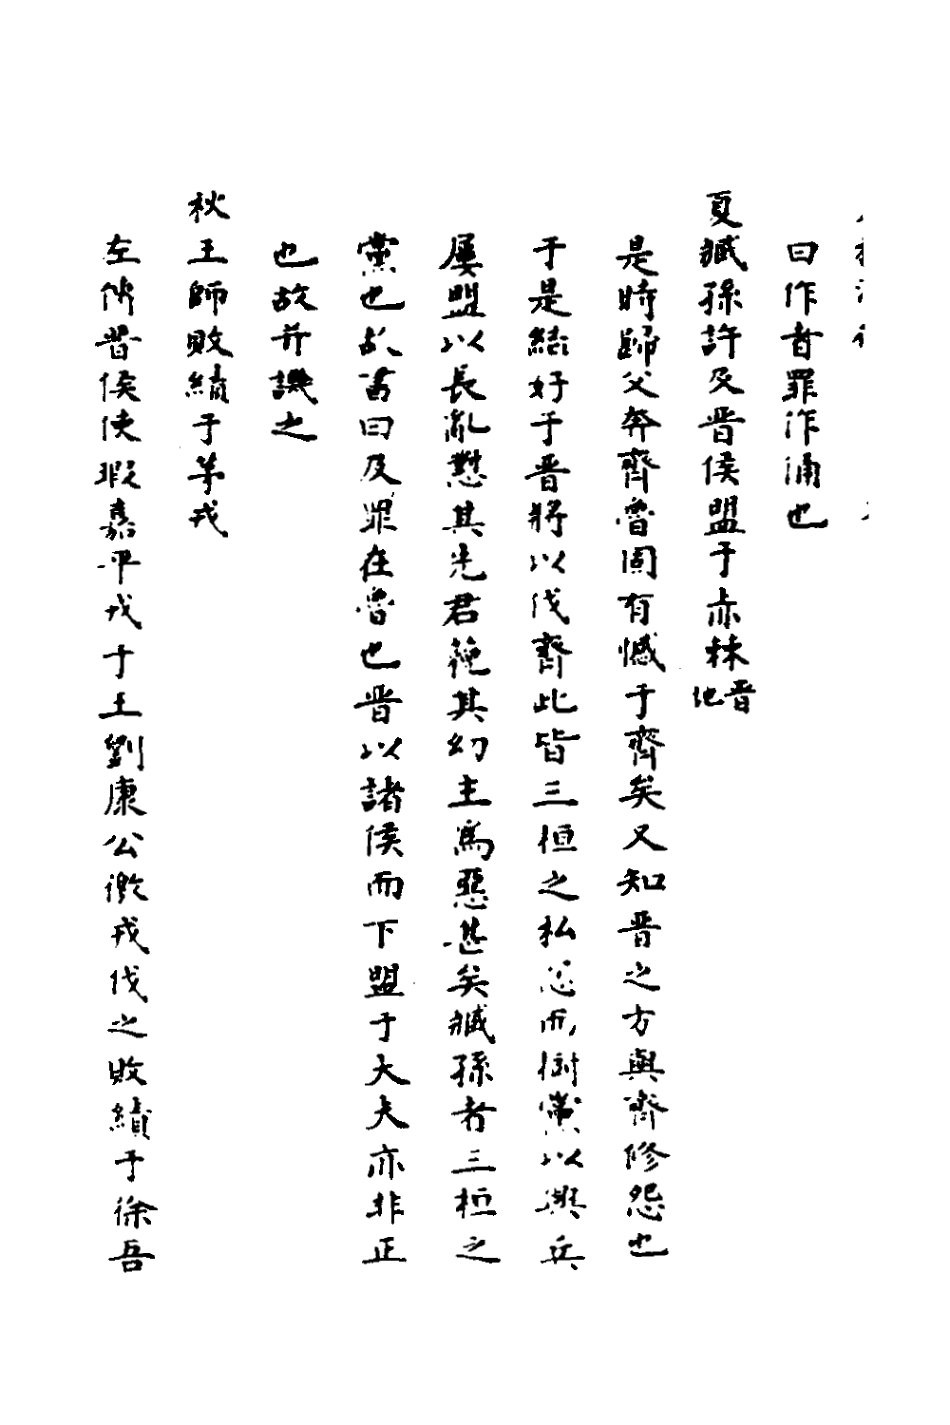 曰作者罪作俑也
夏臧孫許及晋侯盟于赤棘晋地
是時歸父奔齊魯固有憾于齊矣又知晋之方與齊修怨也
于是結好于晋將以伐齊此皆三桓之私忿而樹黨以興兵
屢盟以長亂愆其先君蔑其幼主爲惡甚矣臧孫者三桓之
黨也故書曰及罪在魯也晋以諸侯而下盟于大夫亦非正
也故并譏之
秋王師敗績于茅戎
左傳晋侯使瑕嘉平戎于王劉康公徼戎伐之敗績于徐吾